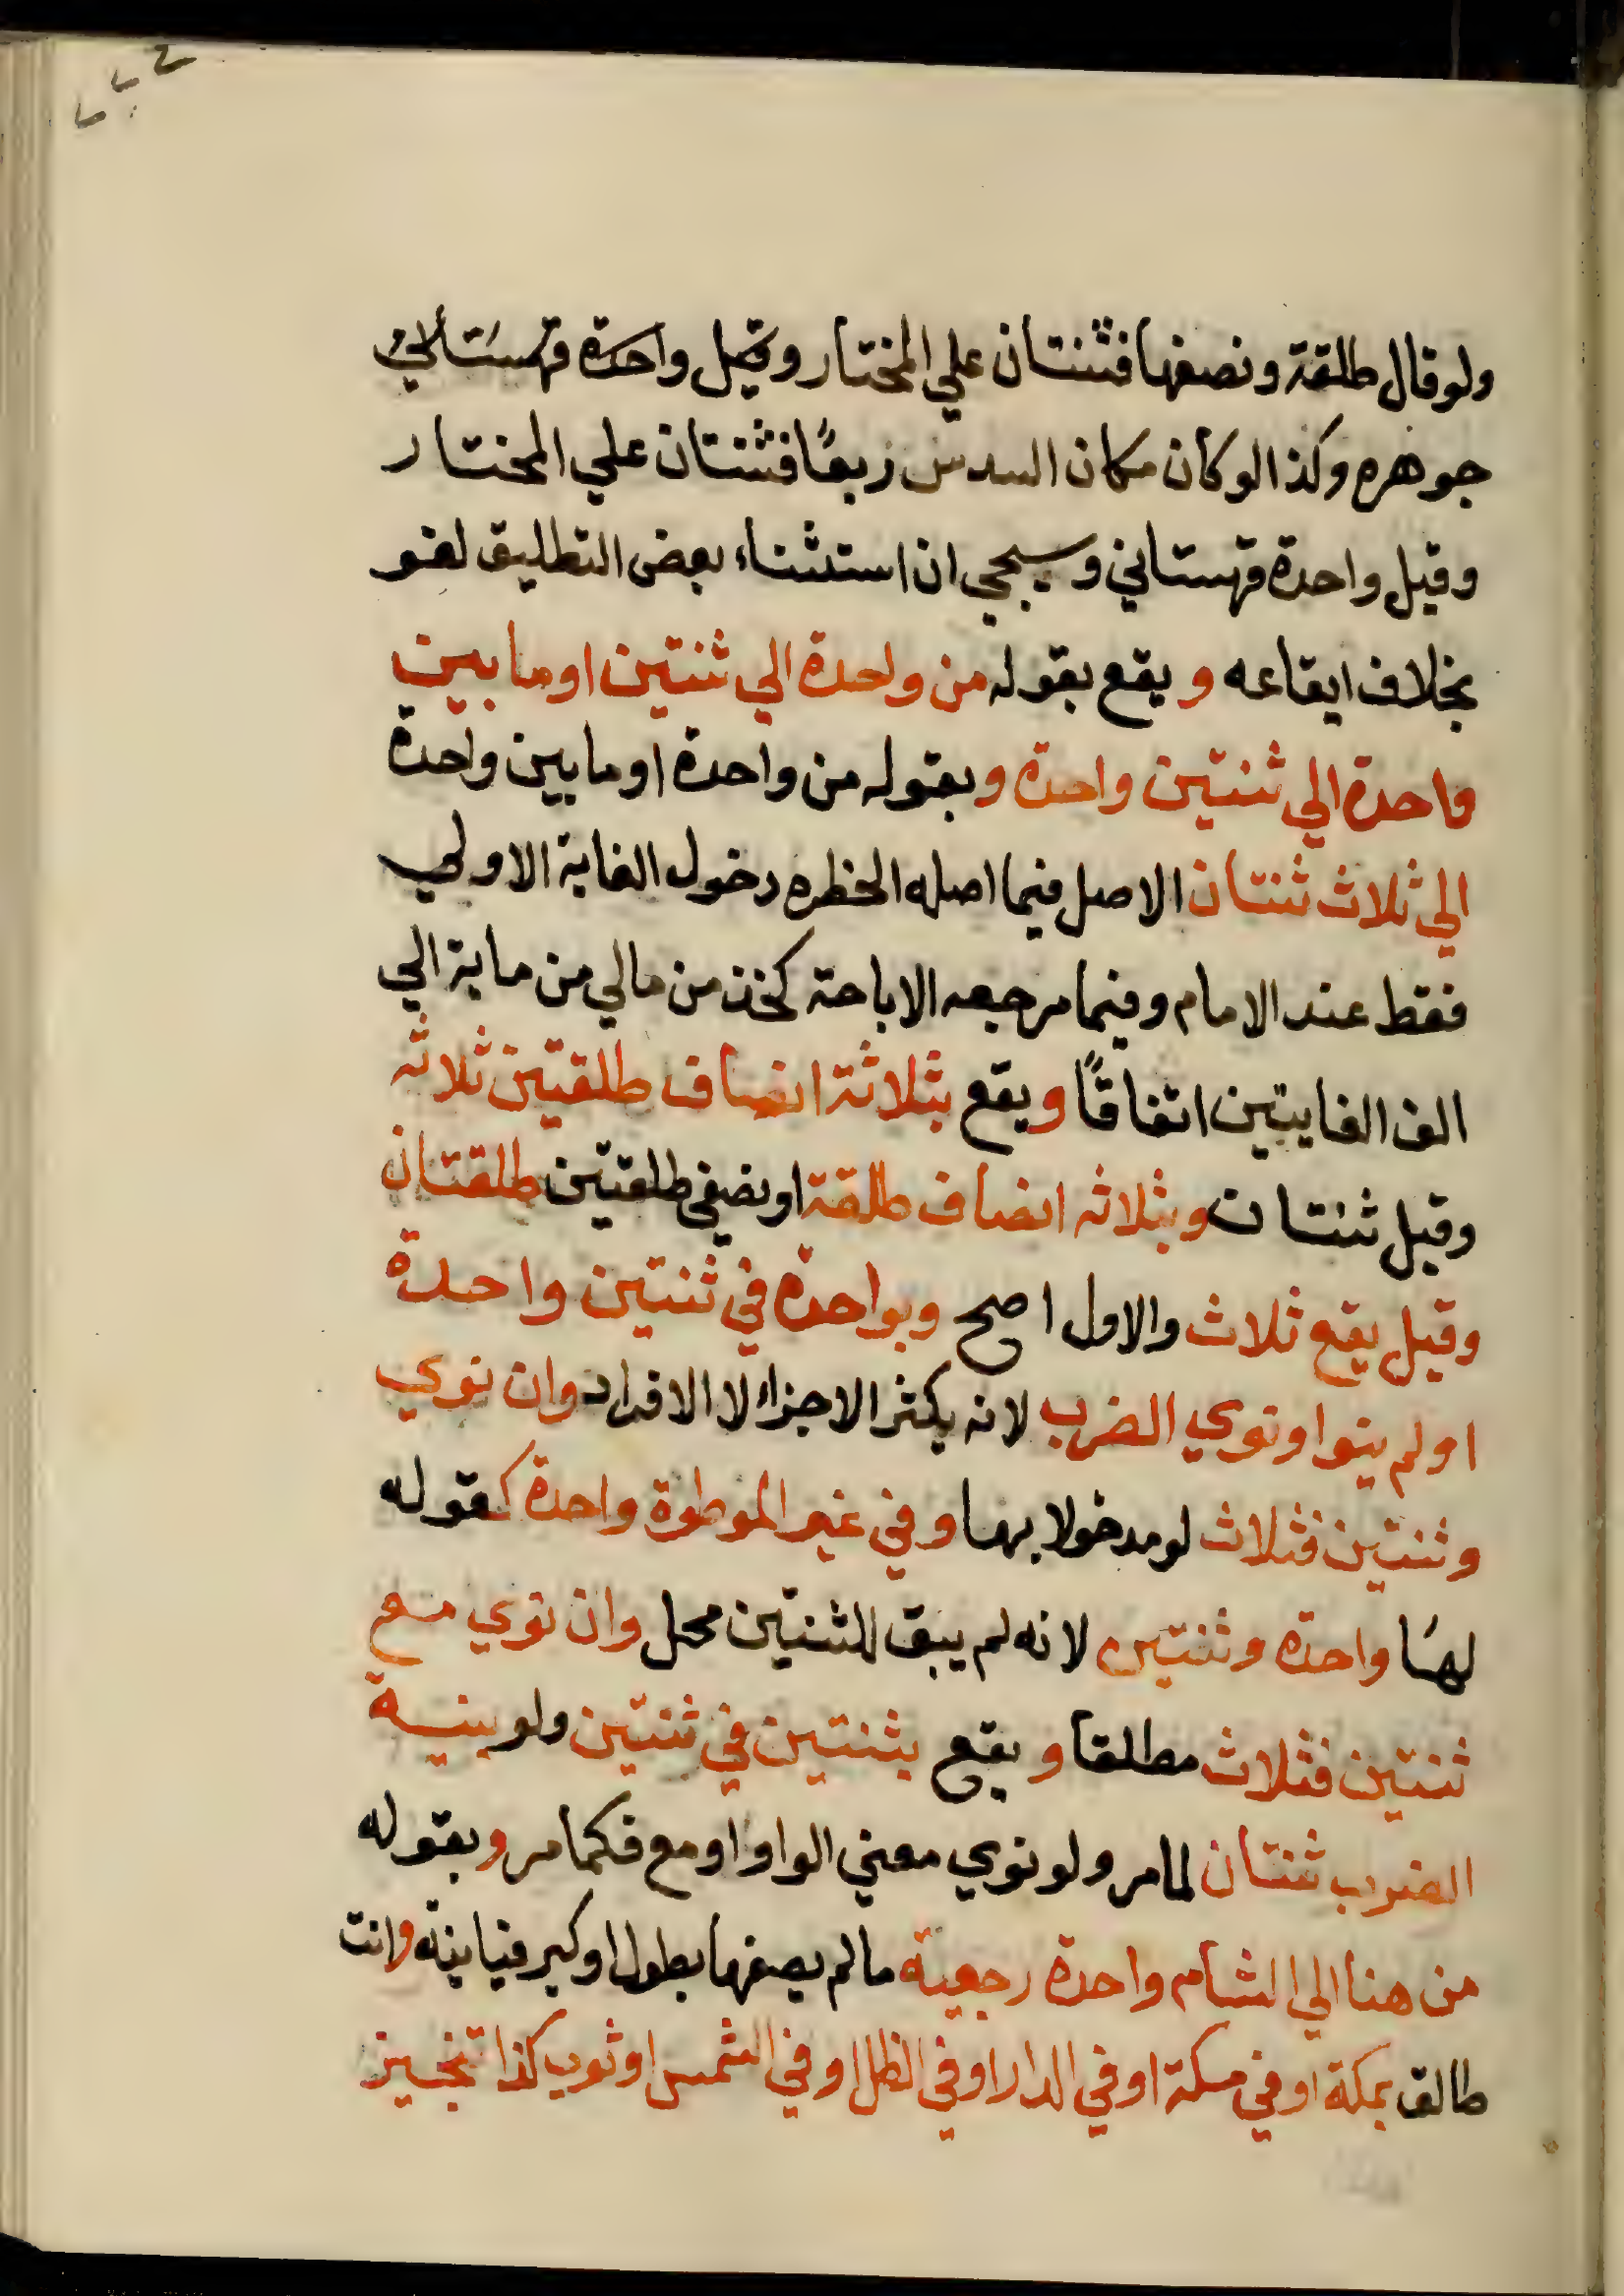 ولو قال طلقة ونصفها فثنتان علي المختار وقيل واحدة قهستاني
جوهره وكذا لو كان مكان السدس ربعًا فثنتان علي المختار
وقيل واحدة قهستاني وسيجي ان استثناء بعض التطليق لغو
بخلاف ايقاعه و يقع بقوله من واحدة الي ثنتين او ما بين
واحدة الي ثنتين واحدة وبقوله من واحدة او ما بين واحدة
الي ثلاث ثنتان الاصل فيما اصله الحظره دخول الغاية الاولي
فقط عند الامام وفيما مرجعه الاباحة كخذ من مالي من ماية الي
الف الغايتين اتفاقًا ويقع بثلاثة انصاف طلقتين ثلاثه
وقيل ثنتان وبثلاثه انصاف طلقة او نصفي طلقتين طلقتان
وقيل يقع ثلاث والاول اصح وبواحدة في ثنتين واحدة
او لم ينوا ونوي الضرب لانه يكثر الاجزاء لا الافراد وان نوي
وثنتين فثلاث لو مدخولا بها وفي غير الموطوة واحدة كقوله
لها واحدة وثنتين لانه لم يبق للثنتين محل وان نوي مع
ثنتين فثلاث مطلقا و يقع بثنتين في ثنتين ولو بنية
الضرب ثنتان لما مر ولو نوي معني الواو او مع فكما مر وبقوله
من هنا الي الشام واحدة رجعية ما لم يصفها بطول او كبر فباينة وانت
طالق بمكة او في مكة او في الدار او في الظل او في الشمس او ثوب كذا تنجيز